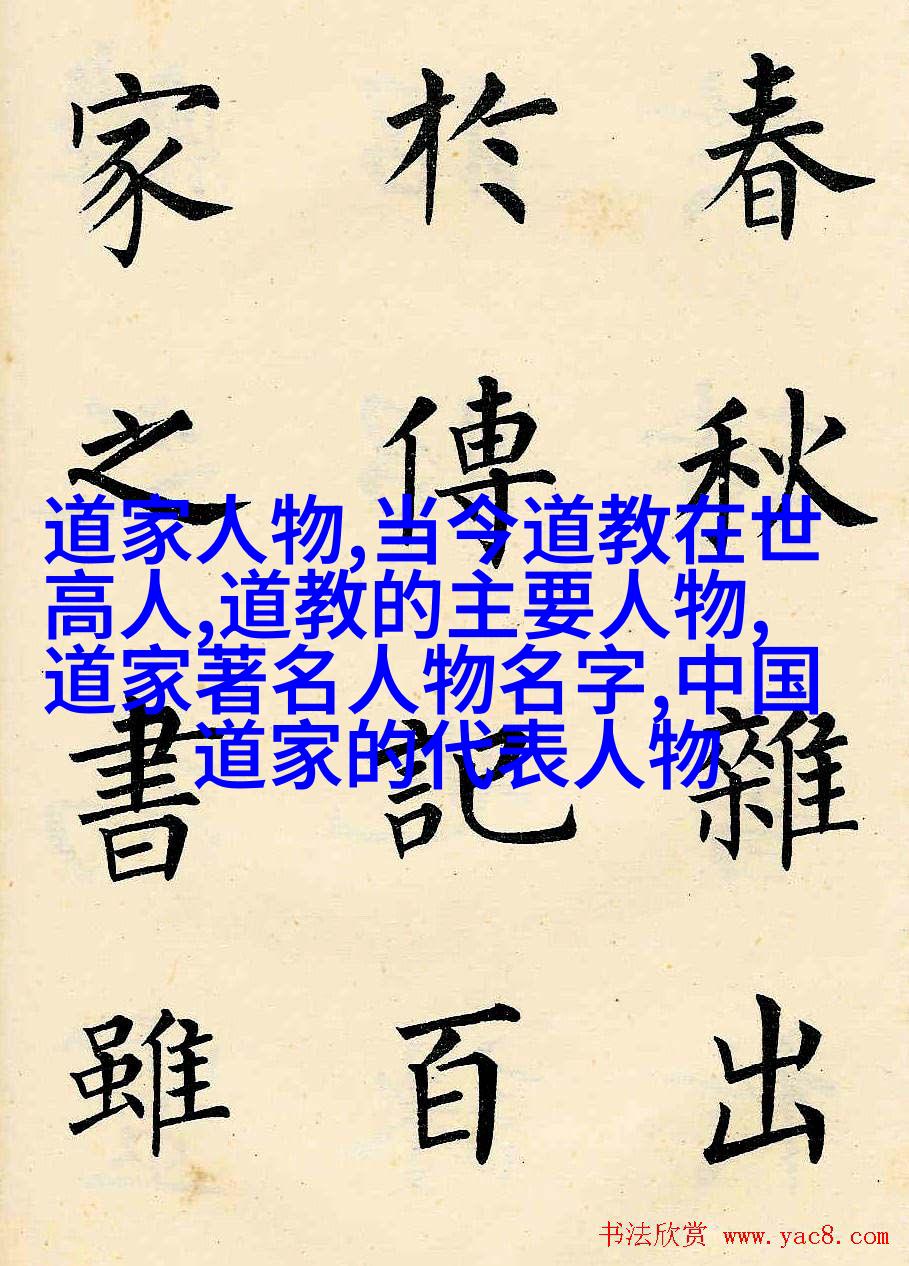 春秋雜出
於傳記百
家之書雖
道家人物,当今道教在世
高人,道教的主要人物,
道家著名人物名字,中国
道家的代表人物
书法欣赏 www.yac8.com